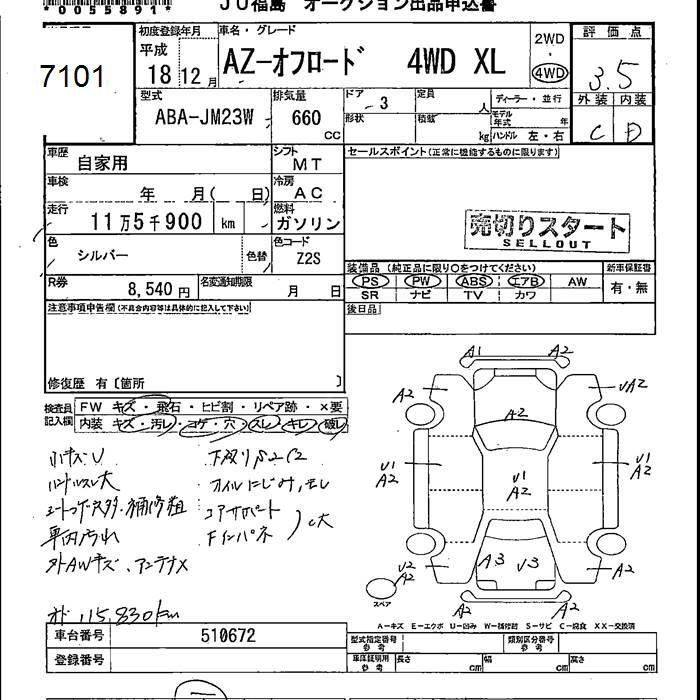 *0055891*
JU福島 オークション出品申込書
7101
初度登録年月
平成
18 12 月
車名・グレード
AZ-オフロード 4WD XL
2WD
・
4WD
評価点
3.5
外装 内装
C D
型式
ABA-JM23W
排気量
660
CC
ドア 3
形状
定員 人
積載 kg
ディーラー・並行
モデル年式 年
ハンドル 左・右
車歴
自家用
シフト
MT
セールスポイント(正常に機能するものに限ります)
車検
年 月( 日)
冷房
AC
走行
11万5千900 km
燃料
ガソリン
売切りスタート
SELLOUT
色
シルバー
色替
色コード
Z2S
装備品 (純正品に限り○をつけてください)
新車保証書
PS PW ABS エアB AW
SR ナビ TV カワ
有・無
R券
8,540 円
名変通知期限
月 日
後日品
注意事項申告欄(不具合内容等は具体的に記入して下さい)
修復歴 有〔箇所 〕
検査員
記入欄
FW キズ・飛石・ヒビ割・リペア跡・×要
内装 キズ・汚レ・コゲ・穴・スレ・キレ・破レ
小キズU
ハンドルスレ大
補修粗
車内汚れ
外AWキズ、アンテナX
オイルにじみ、モレ
コアサポート
Fインパネ
C大
オド 115,830km
A1 A2
A2 UA2
A2
U1 A2
U1 A2
U1 A2
A3 U3
U2 A2
A2
A2 A2
スペア
A-キズ E-エクボ U-凹み W-補修跡 S-サビ C-腐食 XX-交換済
車台番号
510672
登録番号
型式指定番号
参考
類別区分番号
参考
車庫証明用
参考
長さ cm
幅 cm
高さ cm